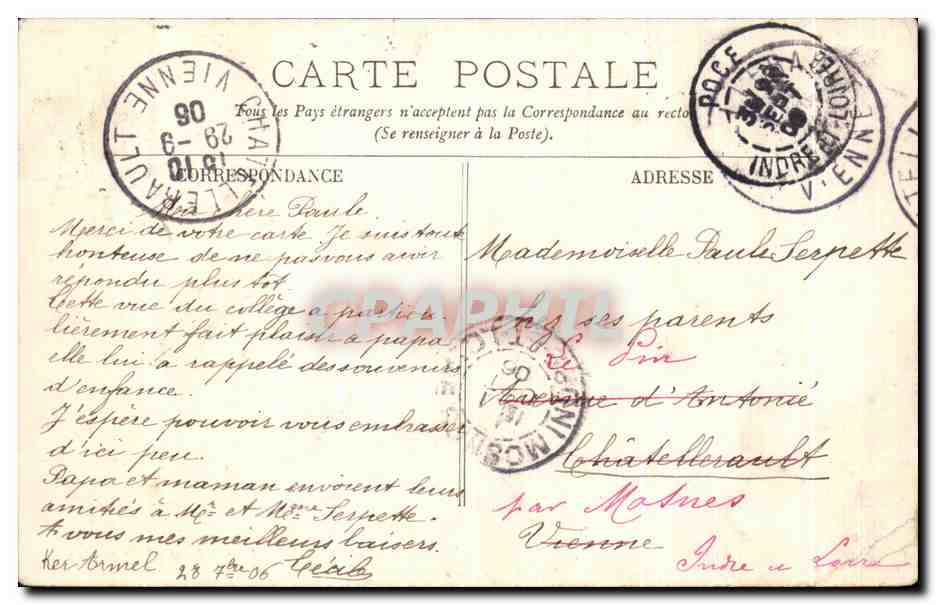 CARTE POSTALE
Tous les Pays étrangers n'acceptent pas la Correspondance au recto
(Se renseigner à la Poste).
CORRESPONDANCE
ADRESSE
CHATELLERAULT
VIENNE
15 10
29 -9
06
POCE
INDRE-ET-LOIRE
VIENNE
Mon chère Paule
Merci de votre carte. Je suis toute
honteuse de ne pas vous avoir
répondu plus tôt.
Cette vue du collège a particu
lièrement fait plaisir à papa
elle lui a rappelé des souvenirs
d'enfance.
J'espère pouvoir vous embrasser
d'ici peu.
Papa et maman envoient leurs
amitiés à Mr et Mme Serpette.
A vous mes meilleurs baisers.
Ker Armel 28 7bre 06 Cécile
Mademoiselle Paule Serpette
chez ses parents
Le Pin
Avenue d'Antonié
Châtellerault
par Mosnes
Vienne
Indre et Loire
CPARAMA